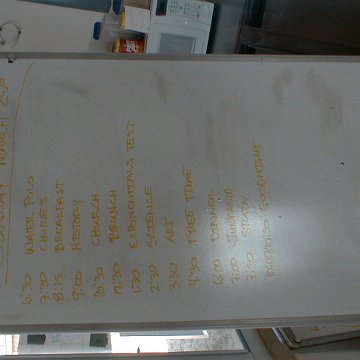 MARCH
6:30 WATER POLO
7:30 CHORES
8:15 BREAKFAST
9:00 HISTORY
10:30 CHURCH
12:30 BRUNCH
1:30 EXPONENTIALS TEST
2:30 SCIENCE
3:30 ART
4:30 FREE TIME
6:00 DINNER
7:00
7:30 STUDY
GOODNIGHT